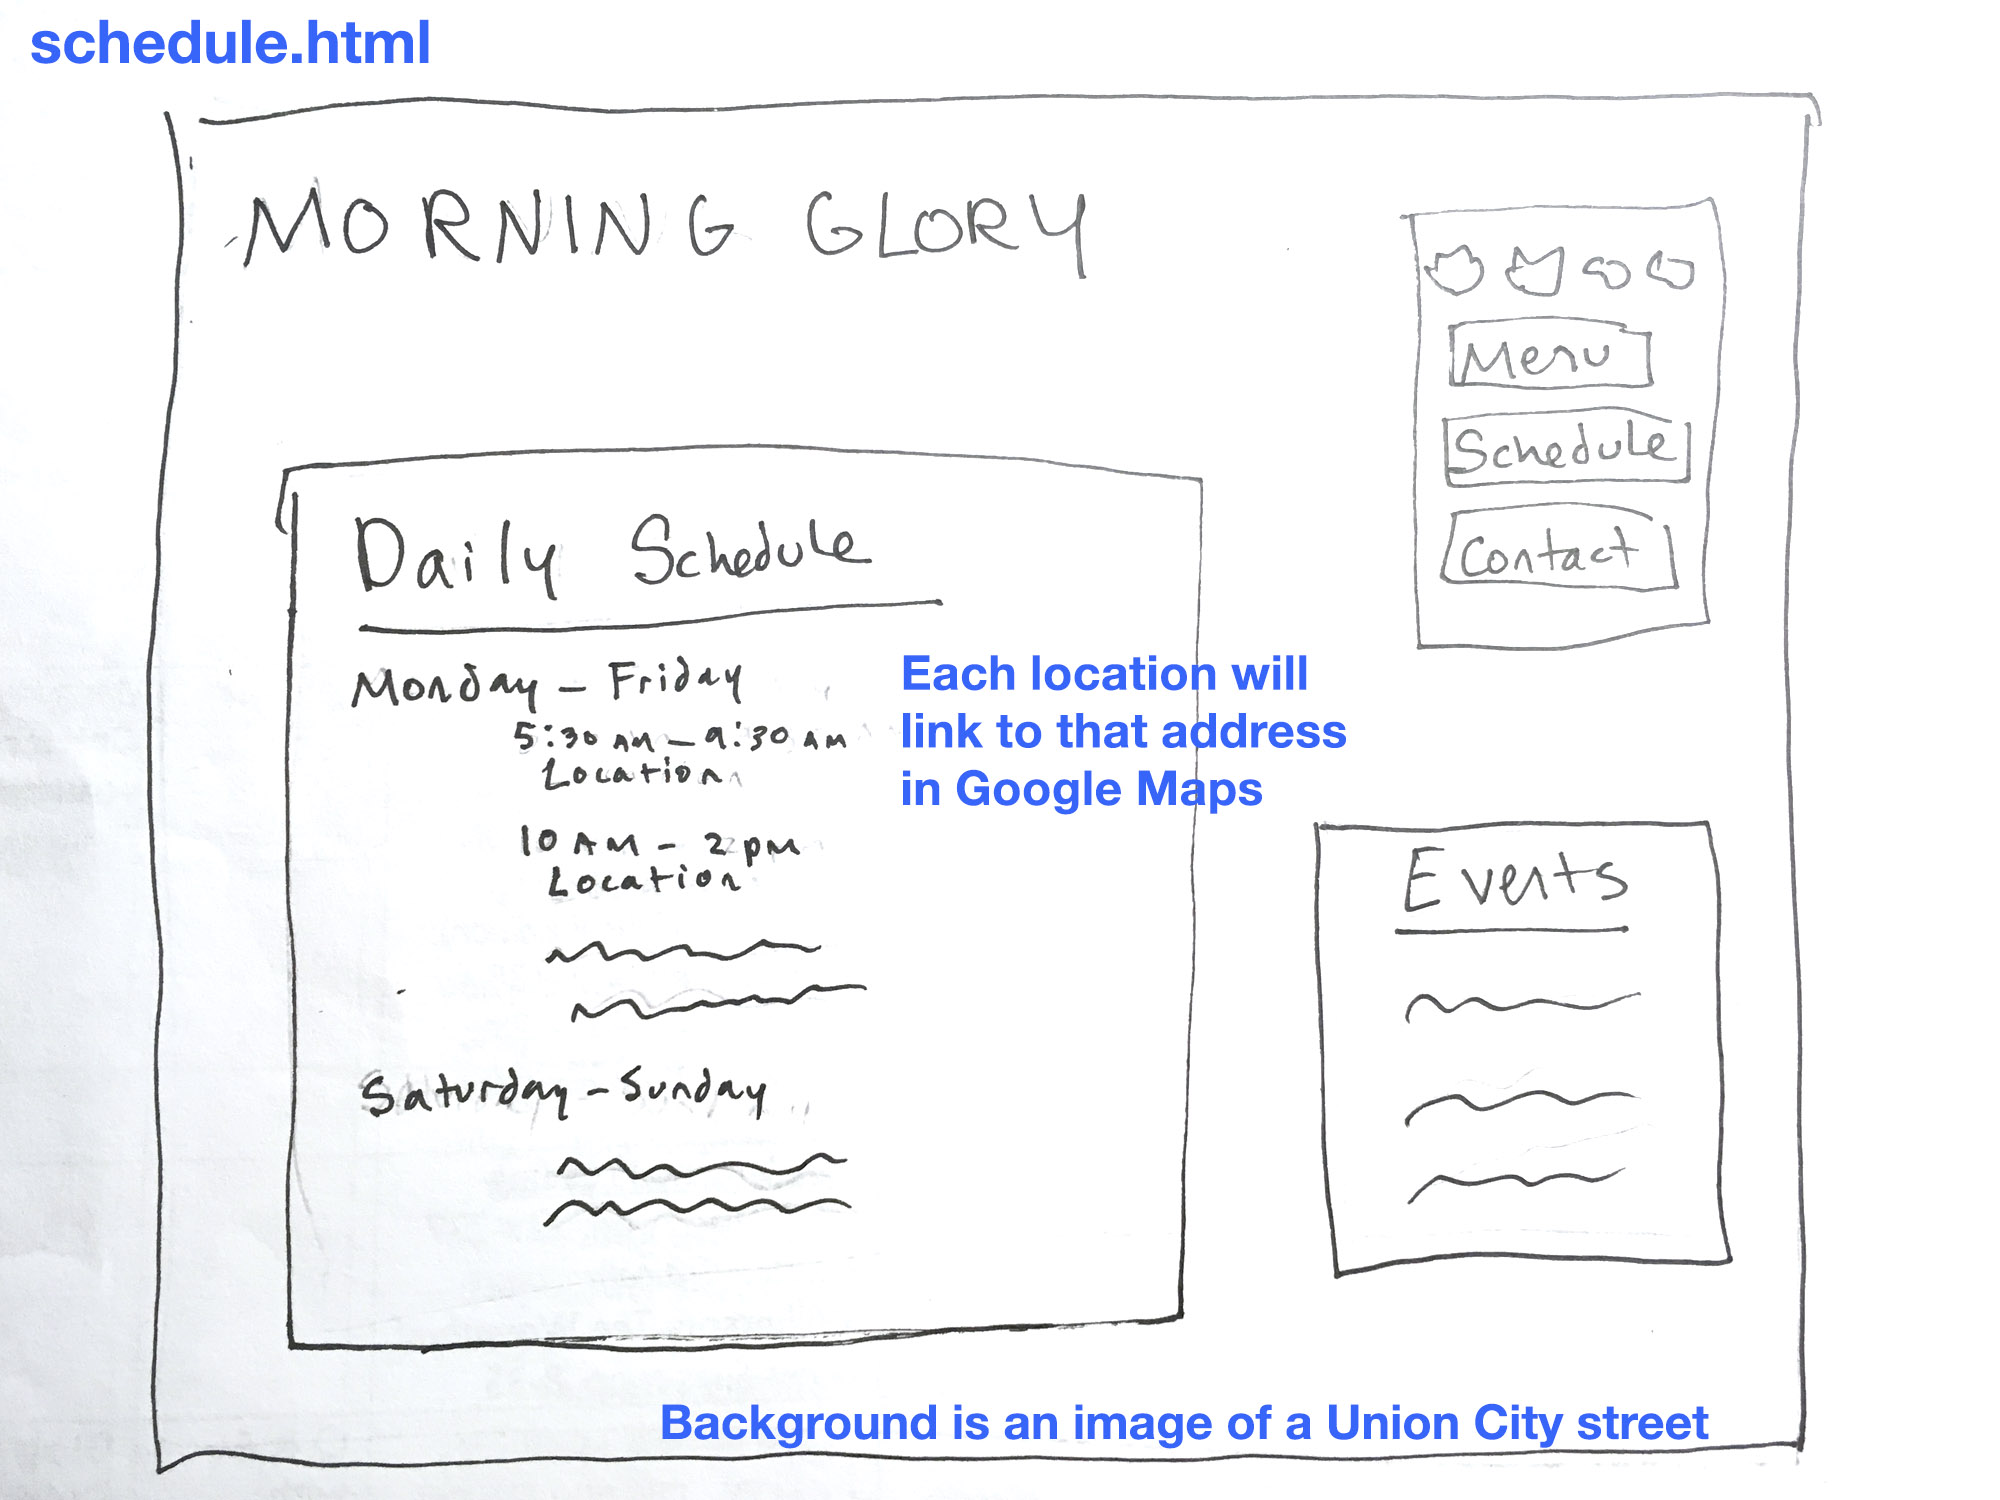 schedule.html
MORNING GLORY
Menu
Schedule
Contact
Daily Schedule
Monday - Friday
5:30 AM - 9:30 AM
Location
10 AM - 2 PM
Location
Saturday - Sunday
Each location will
link to that address
in Google Maps
Events
Background is an image of a Union City street